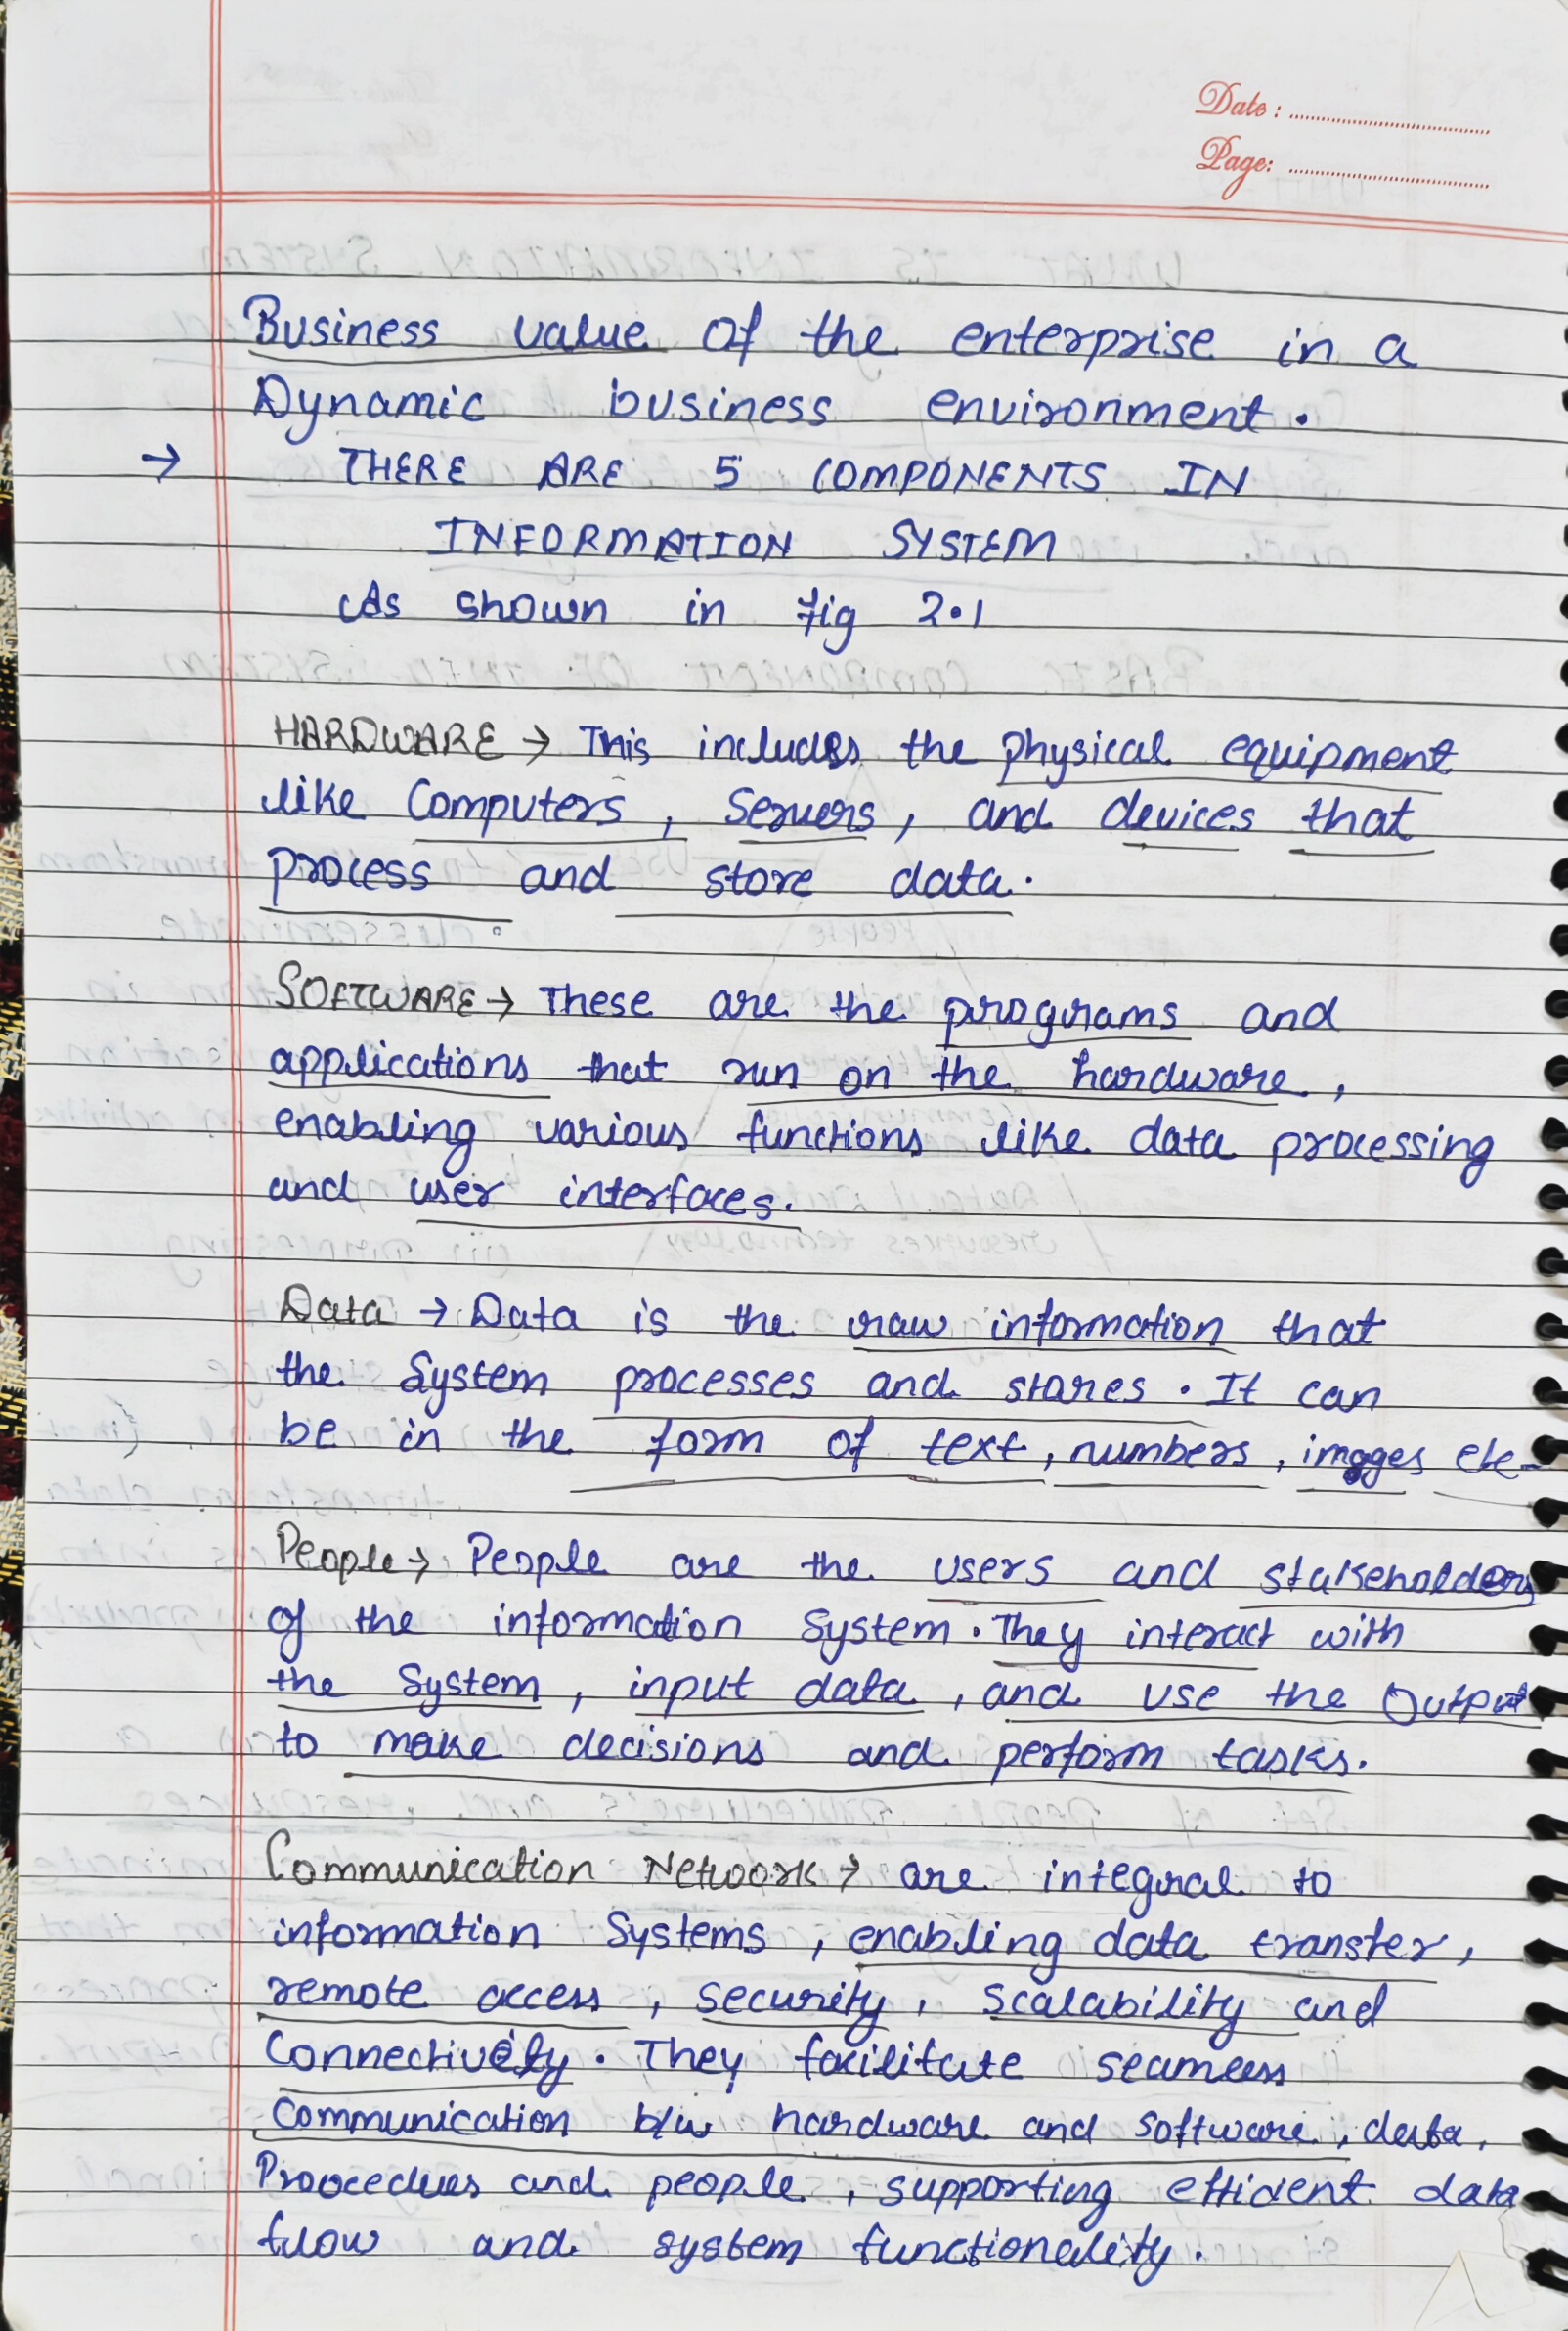 Date:
Page:
Business value of the enterprise in a
Dynamic business environment.
→ THERE ARE 5 COMPONENTS IN
INFORMATION SYSTEM
As shown in fig 2.1
HARDWARE → This includes the physical equipment
like Computers, Servers, and devices that
process and store data.
SOFTWARE → These are the programs and
applications that run on the hardware,
enabling various functions like data processing
and user interfaces.
Data → Data is the raw information that
the System processes and stores. It can
be in the form of text, numbers, images etc-
People → People are the users and stakeholders
of the information System. They interact with
the System, input data, and use the Output
to make decisions and perform tasks.
Communication Network → are integral to
information Systems, enabling data transfer,
remote access, security, scalability and
Connectivity. They facilitate seamless
Communication b/w hardware and software, data,
and people, supporting efficient data
flow and system functionality.